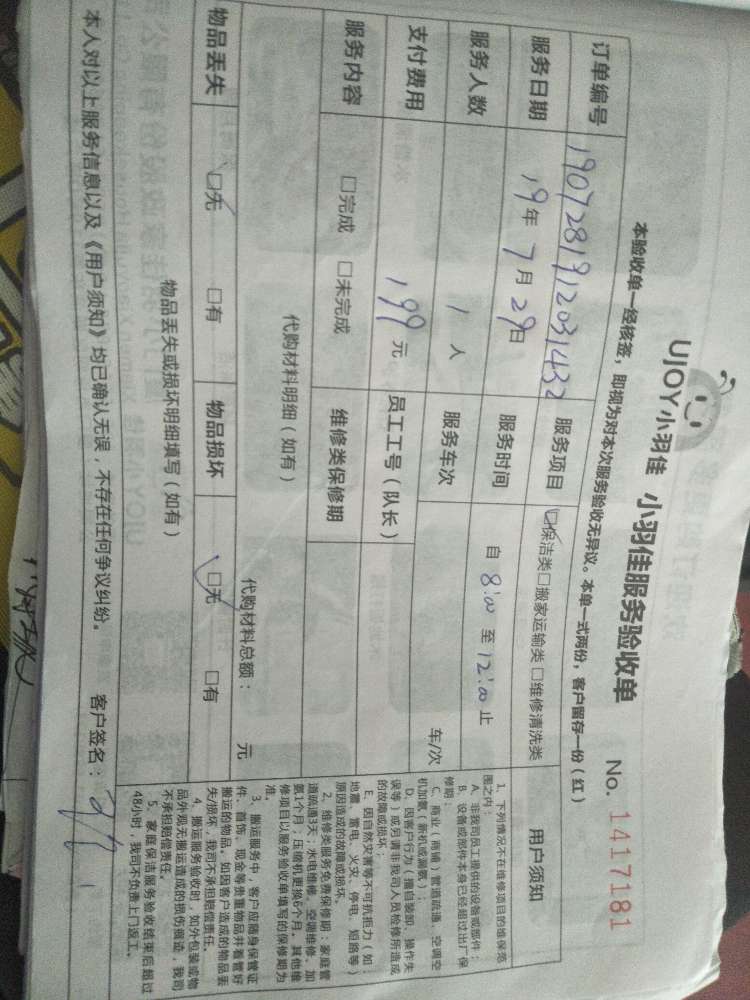 UJOY小羽佳 小羽佳服务验收单 No. 1417181
本验收单一经核签，即视为对本次服务验收无异议。本单一式两份，客户留存一份（红）
订单编号 1907281912031432 服务项目 □保洁类□搬家运输类□维修清洗类
服务日期 19年7月29日 服务时间 自 8:00 至 12:00 止
服务人数 1 人 服务车次 车/次
支付费用 199 元 员工工号（队长）
服务内容 □完成 □未完成 维修类保修期
代购材料明细（如有） 代购材料总额： 元
物品丢失 □无 □有 物品损坏 □无 □有
物品丢失或损坏明细填写（如有）
用户须知
1、下列情况不在维修项目的维保范
围之内：
A、非我司员工提供的设备或部件；
B、设备或部件本身已经超过出厂保
修期；
C、商业（商铺）管道疏通、空调空
机加氨（新机或漏氨）；
D、因客户行为（擅自装卸、操作失
误等）或另请非我司人员检修所造成
的故障或损坏；
E、因自然灾害等不可抗拒力（如：
地震、雷电、火灾、停电、短路等）
原因造成的故障或损坏。
2、维修类服务免费保修期：家庭管
道疏通3天；水电维修、空调维修、加
氨1个月；压缩机更换6个月。其他维
修项目以服务验收单填写的保修期为
准。
3、搬运服务中，客户应随身保管证
件、首饰、现金等贵重物品并看管好
搬运的物品。如因客户造成的物品丢
失/损坏，我司不承担赔偿责任。
4、搬运服务验收时，如外包装或物
品外观无搬运造成的损伤痕迹，我司
不承担赔偿责任。
5、家庭保洁服务验收结束后超过
48小时，我司不负责上门返工。
本人对以上服务信息以及《用户须知》均已确认无误，不存在任何争议纠纷。 客户签名：